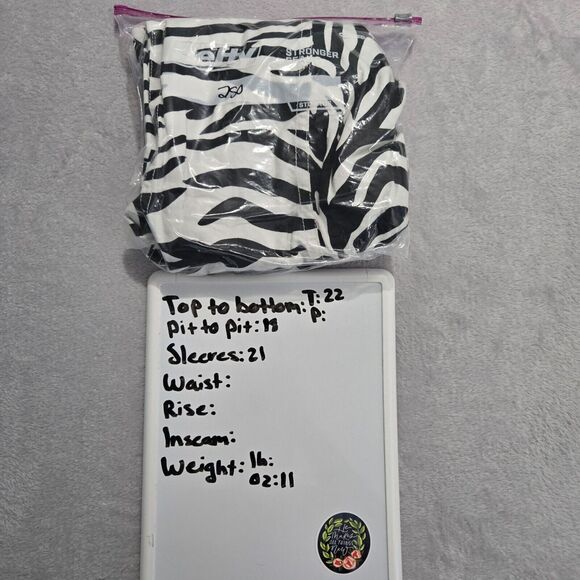 STRONGER
250
Top to bottom: T: 22
P:
Pit to pit: 18
Sleeves: 21
Waist:
Rise:
Inseam:
Weight: lb:
oz: 11